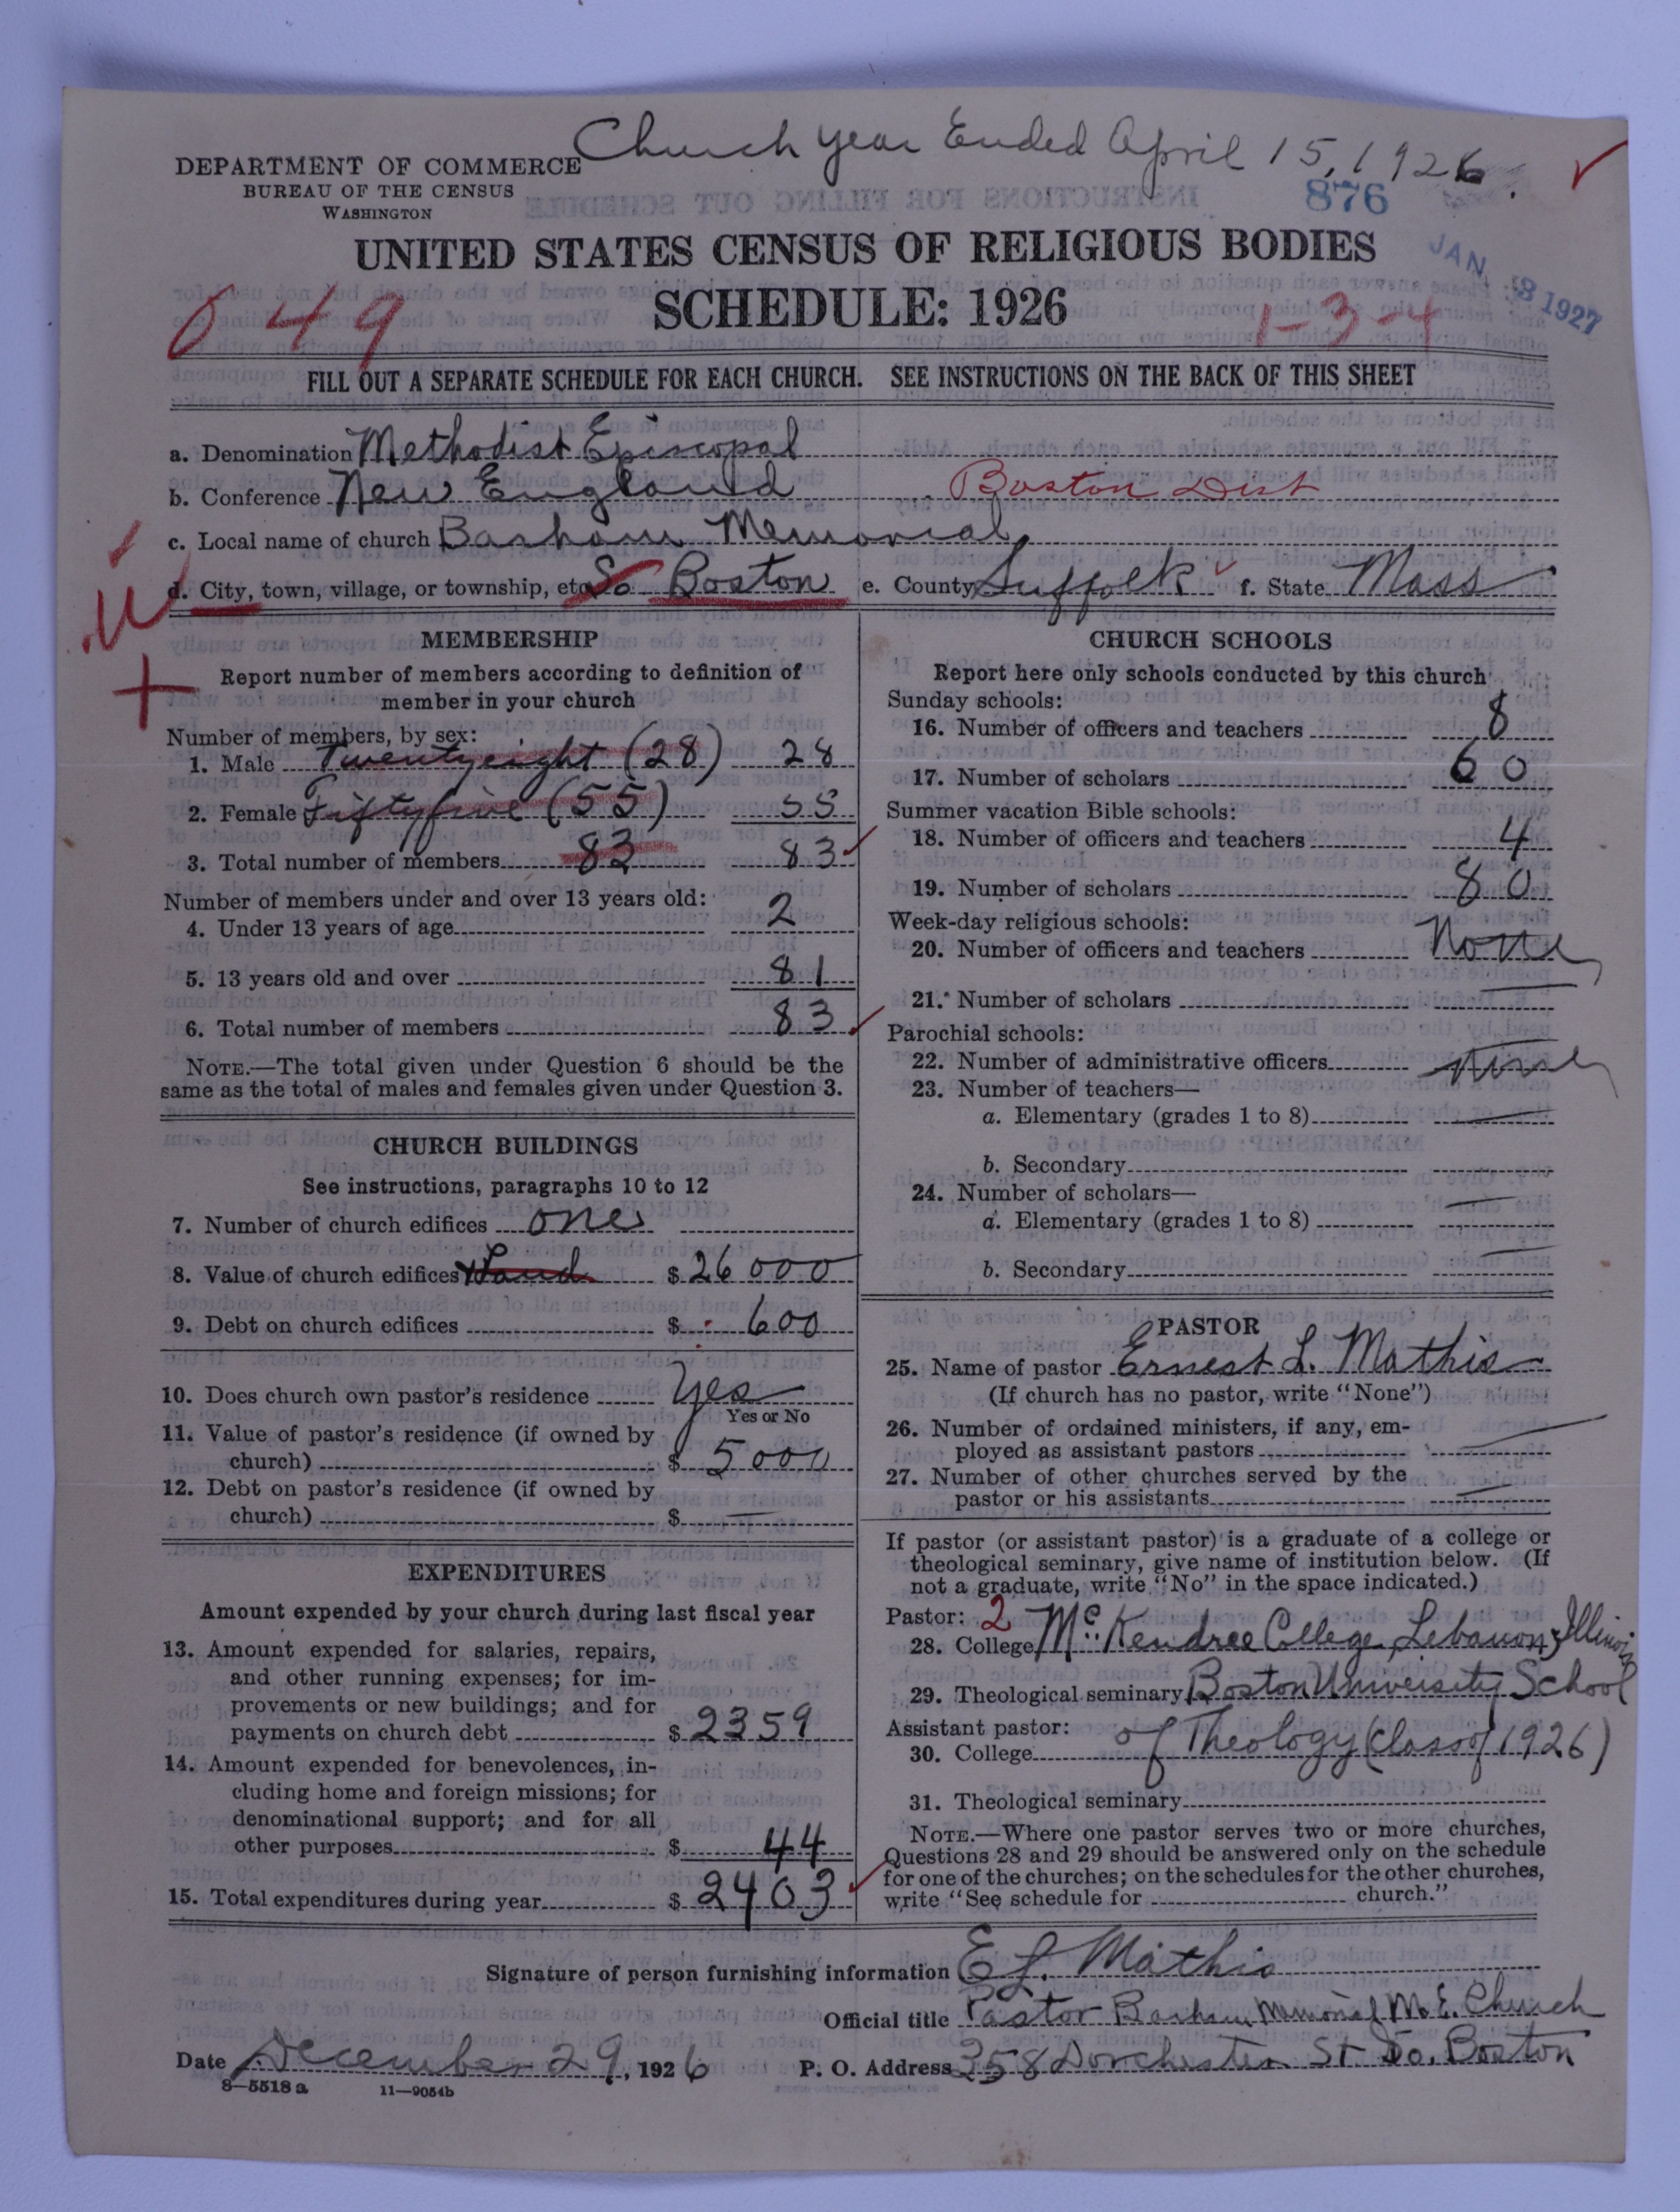 Church year Ended April 15, 1926.
DEPARTMENT OF COMMERCE
BUREAU OF THE CENSUS
WASHINGTON
876
JAN 3 1927
UNITED STATES CENSUS OF RELIGIOUS BODIES
SCHEDULE: 1926
049
1-3-4
FILL OUT A SEPARATE SCHEDULE FOR EACH CHURCH. SEE INSTRUCTIONS ON THE BACK OF THIS SHEET
a. Denomination Methodist Episcopal
b. Conference New England Boston Dist
c. Local name of church Barham Memorial
d. City, town, village, or township, etc. So Boston e. County Suffolk f. State Mass
MEMBERSHIP
Report number of members according to definition of
member in your church
Number of members, by sex:
1. Male Twentyeight (28) 28
2. Female Fiftyfive (55) 55
3. Total number of members 83 83
Number of members under and over 13 years old:
4. Under 13 years of age 2
5. 13 years old and over 81
6. Total number of members 83
NOTE.—The total given under Question 6 should be the
same as the total of males and females given under Question 3.
CHURCH BUILDINGS
See instructions, paragraphs 10 to 12
7. Number of church edifices one
8. Value of church edifices $ 26000
9. Debt on church edifices $ 600
10. Does church own pastor's residence Yes
Yes or No
11. Value of pastor's residence (if owned by
church) $ 5000
12. Debt on pastor's residence (if owned by
church) $ —
EXPENDITURES
Amount expended by your church during last fiscal year
13. Amount expended for salaries, repairs,
and other running expenses; for im-
provements or new buildings; and for
payments on church debt $ 2359
14. Amount expended for benevolences, in-
cluding home and foreign missions; for
denominational support; and for all
other purposes $ 44
15. Total expenditures during year $ 2403
CHURCH SCHOOLS
Report here only schools conducted by this church
Sunday schools:
16. Number of officers and teachers 8
17. Number of scholars 60
Summer vacation Bible schools:
18. Number of officers and teachers 4
19. Number of scholars 80
Week-day religious schools:
20. Number of officers and teachers None
21. Number of scholars
Parochial schools:
22. Number of administrative officers None
23. Number of teachers—
a. Elementary (grades 1 to 8) —
b. Secondary
24. Number of scholars— —
a. Elementary (grades 1 to 8)
b. Secondary —
PASTOR
25. Name of pastor Ernest L. Mathis
(If church has no pastor, write "None")
26. Number of ordained ministers, if any, em-
ployed as assistant pastors —
27. Number of other churches served by the
pastor or his assistants —
If pastor (or assistant pastor) is a graduate of a college or
theological seminary, give name of institution below. (If
not a graduate, write "No" in the space indicated.)
Pastor: 2
28. College Mc.Kendree College, Lebanon, Illinois
29. Theological seminary Boston University School
Assistant pastor: of Theology (class of 1926)
30. College
31. Theological seminary
NOTE.—Where one pastor serves two or more churches,
Questions 28 and 29 should be answered only on the schedule
for one of the churches; on the schedules for the other churches,
write "See schedule for church."
Signature of person furnishing information E L. Mathis
Official title Pastor Barham Memorial M.E. Church
Date December 29, 1926 P. O. Address 358 Dorchester St So. Boston
8—5518 a 11—9054b